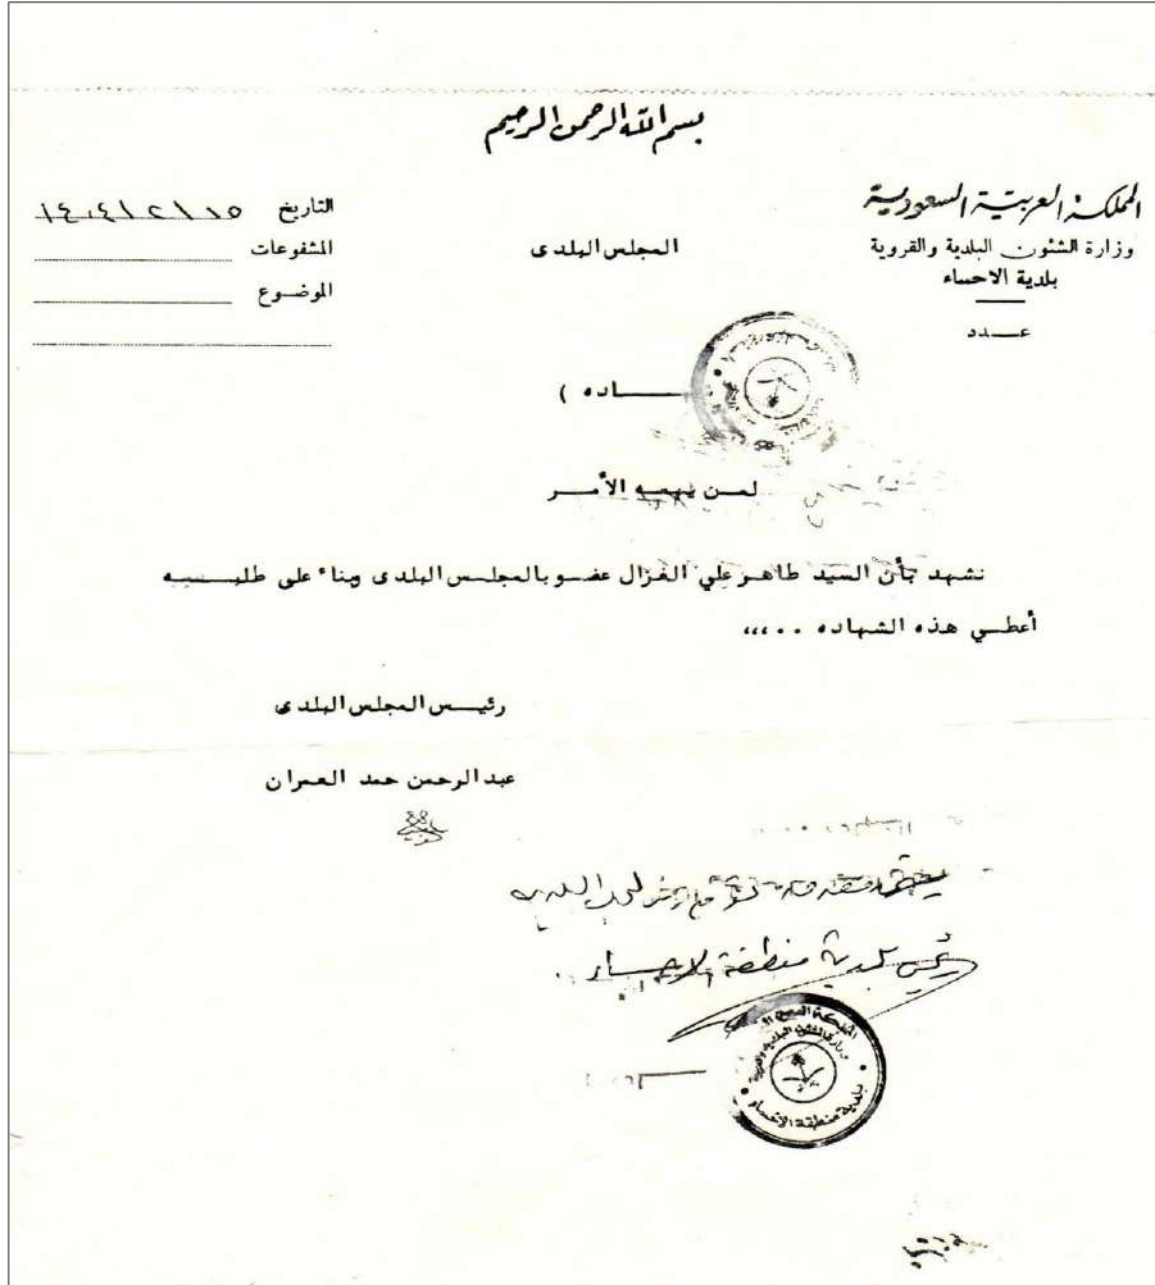 بسم الله الرحمن الرحيم
المملكة العربية السعودية
وزارة الشئون البلدية والقروية
بلدية الاحساء
عـــدد
المجلس البلدى
التاريخ ١٤٠٤/٢/١٥
المشفوعات
الموضوع
ـاده )
لمـن يهمـه الأمـر
نشهد بأن السيد طاهر علي الغزال عضو بالمجلس البلدى وبناء على طلبـــه
أعطـي هذه الشهاده ..،،،
رئيـس المجلس البلدى
عبد الرحمن حمد العمران
رئيس بلدية منطقة الاحساء
المملكة العربية
وزارة الشئون البلدية والقروية
بلدية منطقة الاحساء